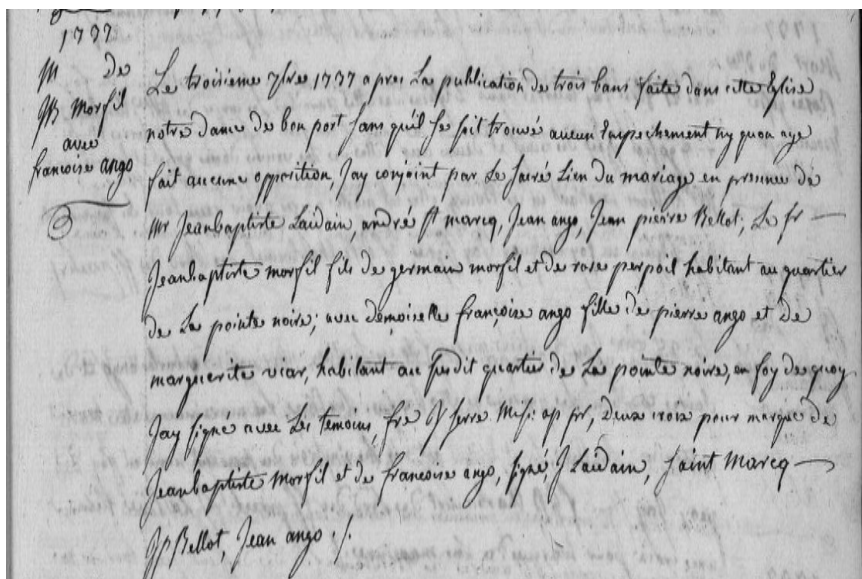 1737
M de
JB Morfil
avec
francoise ango
Le troisieme 7bre 1737 apres La publication de trois bans faite dans cette Eglise
notre dame de bon port sans qu'il se soit trouvé aucun Empechement ny quon aye
fait aucune opposition, Jay conjoint par Le sacré Lien du mariage en presence de
Mr Jeanbaptiste Laidain, andré st marcq, Jean ango, Jean pierre Bellot, Le sr
Jeanbaptiste morfil fils de germain morfil et de rose perpoil habitant au quartier
de La pointe noire; avec demoiselle françoise ango fille de pierre ango et de
marguerite viar, habitant au susdit quartier de La pointe noire, en foy de quoy
Jay signé avec Les temoins, fre Serre ap deux croix pour marque de
Jeanbaptiste Morfil et de francoise ango, signé J Laidain, saint Marcq
Jp Bellot, Jean ango ./.